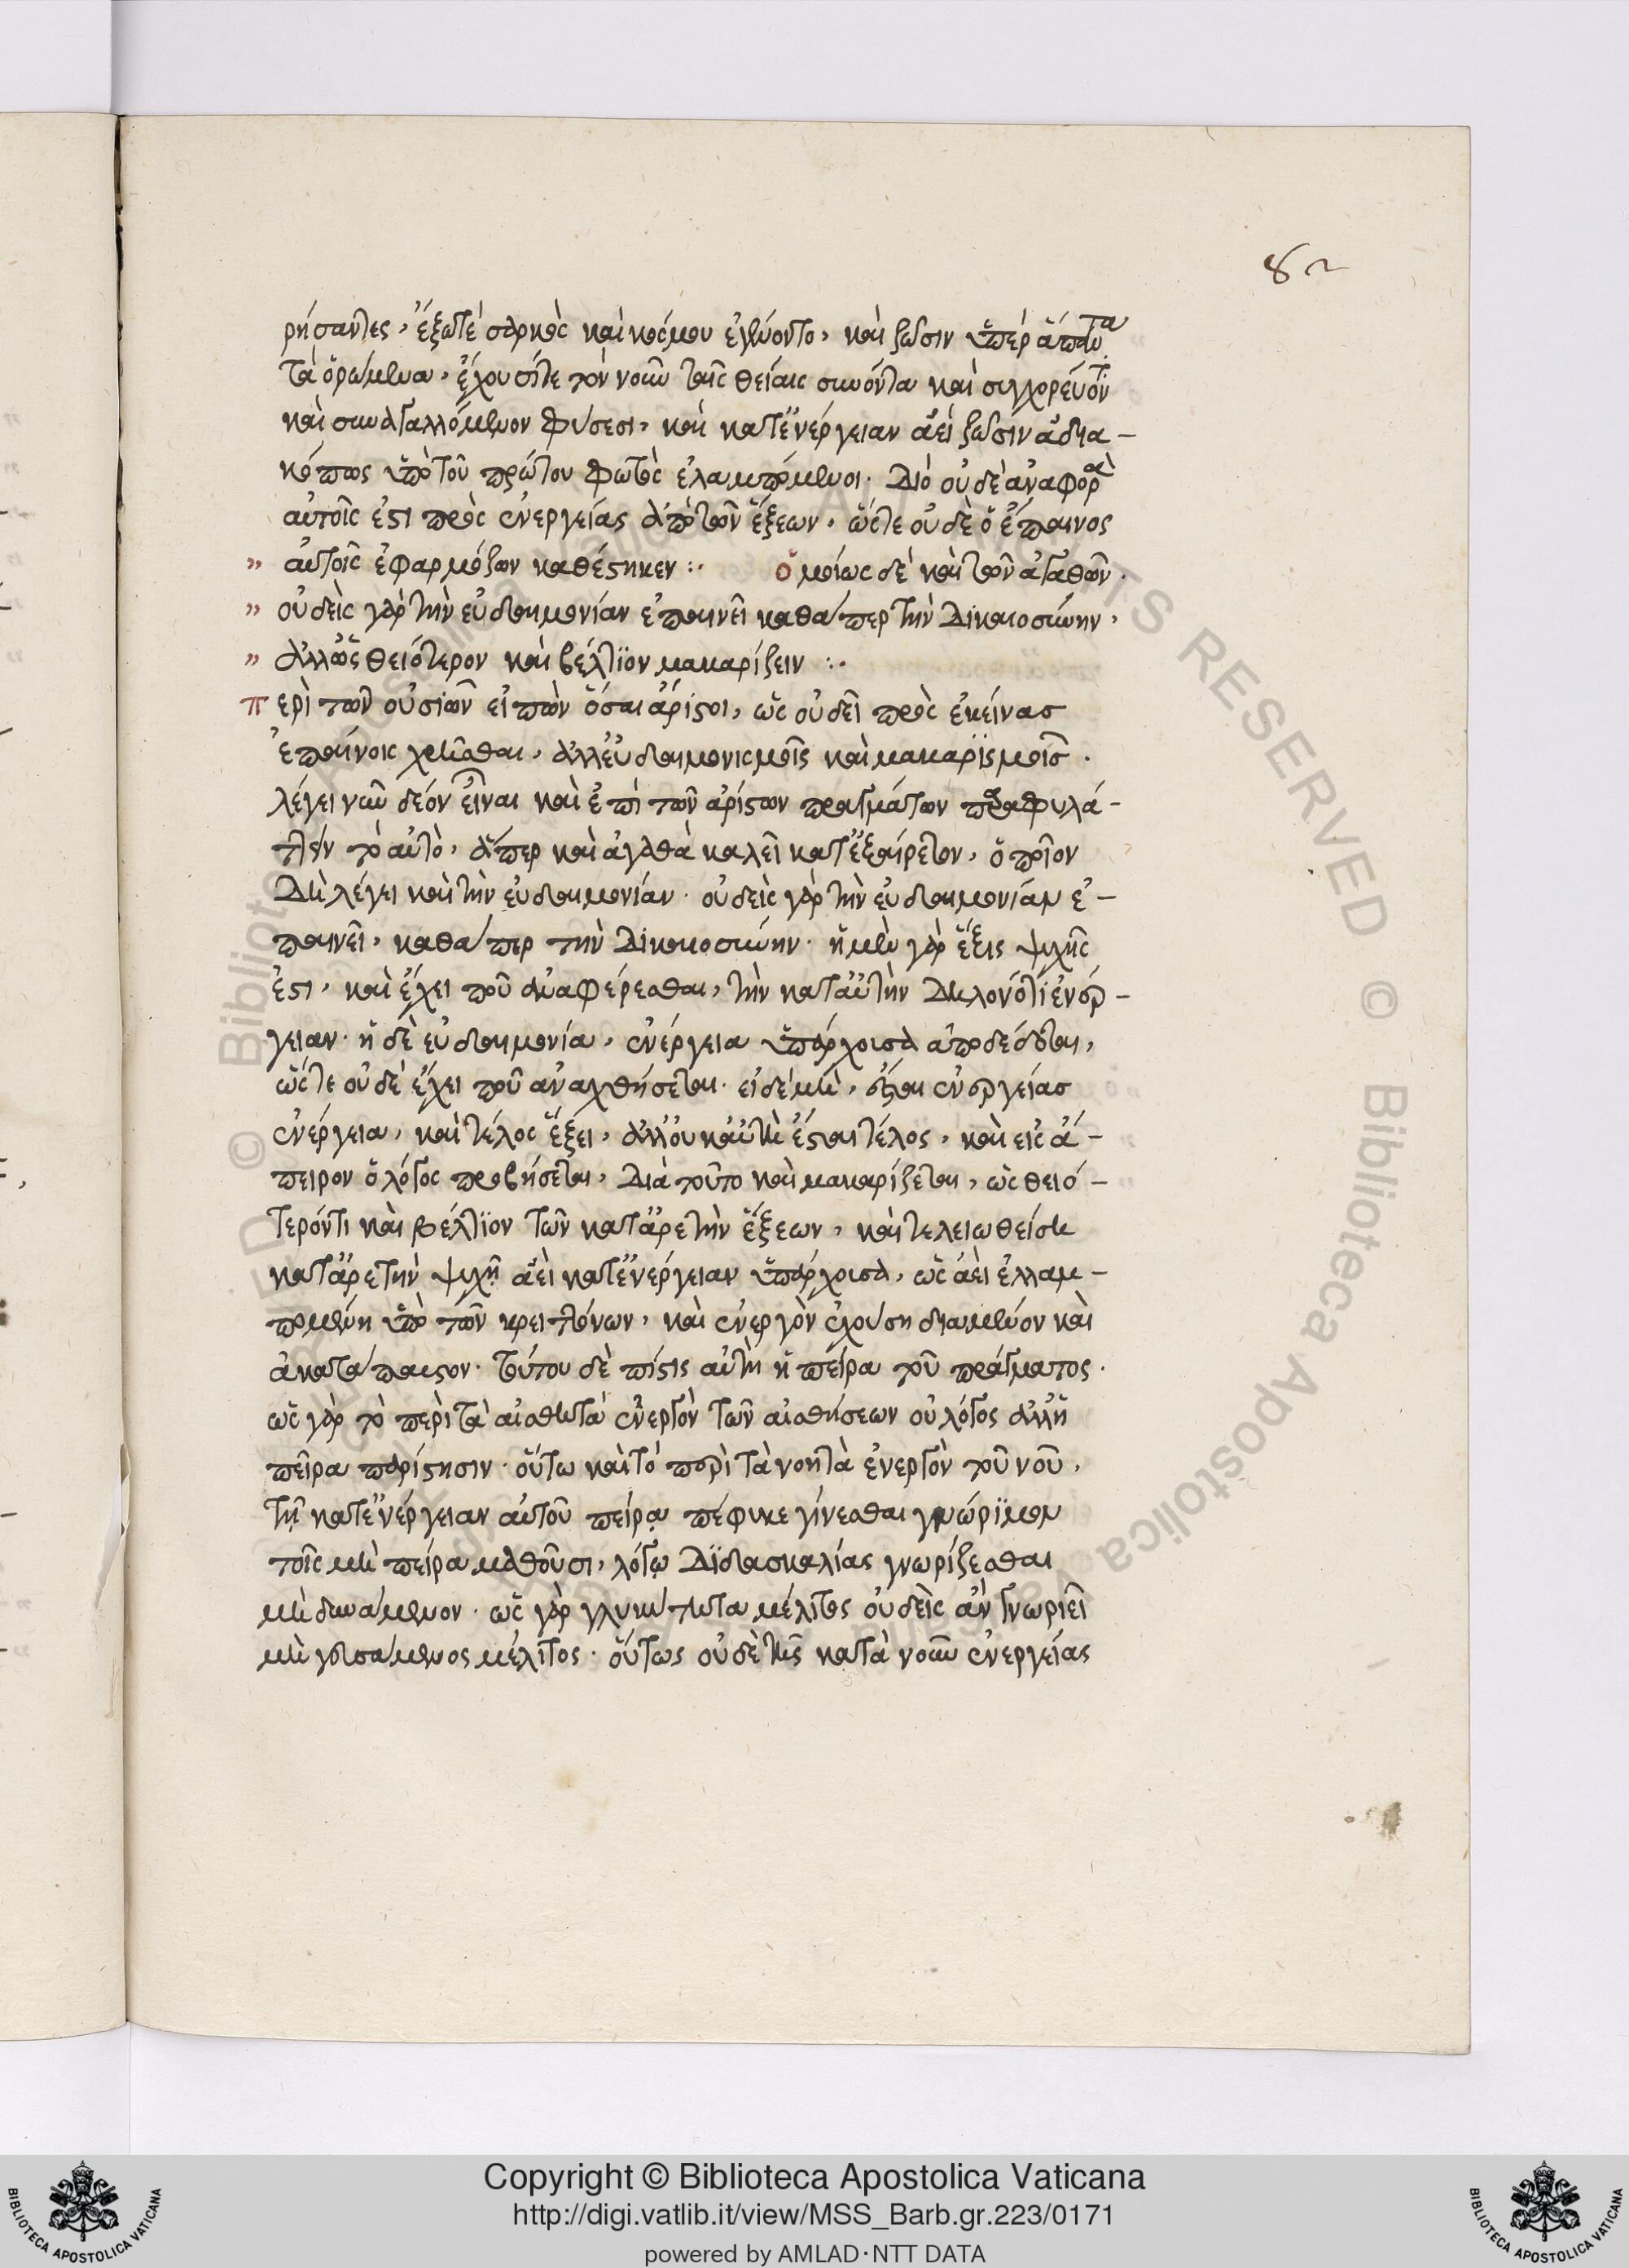 82
ρήσαντες, ἔξω τὲ σαρκὸς καὶ κόσμου ἐγένοντο, καὶ ζῶσιν ὑπὲρ ἅπαντα
τὰ ὁρώμενα, ἔχουσί τε τὸν νοῦν ταῖς θείαις συνόντα καὶ συγχορεύοντα
καὶ συναγαλλόμενον φύσεσι, καὶ κατ' ἐνέργειαν ἀεὶ ζῶσιν ἀδια-
κόπως ὑπὸ τοῦ πρώτου φωτὸς ἐλαμπόμενοι. Διὸ οὐδὲ ἀναφορὰ
αὐτοῖς ἐστι πρὸς ἐνεργείας ἀπὸ τῶν ἕξεων, ὥστε οὐδὲ ὁ ἔπαινος
" αὐτοῖς ἐφαρμόζων καθέστηκεν :· Ὁμοίως δὲ καὶ τῶν ἀγαθῶν.
" οὐδεὶς γὰρ τὴν εὐδαιμονίαν ἐπαινεῖ καθάπερ τὴν Δικαιοσύνην,
" ἀλλ' ὡς θειότερον καὶ βέλτϊον μακαρίζειν :·
Περὶ τῶν οὐσιῶν εἰπὼν ὅσαι ἄρισται, ὡς οὐ δεῖ πρὸς ἐκείνας
ἐπαίνοις χρῆσθαι, ἀλλ' εὐδαιμονισμοῖς καὶ μακαρϊσμοῖς.
λέγει νῦν δέον εἶναι καὶ ἐπὶ τῶν ἀρίστων πραγμάτων παραφυλά-
ττειν τὸ αὐτὸ, ἅπερ καὶ ἀγαθὰ καλεῖ κατ' ἐξαίρετον, ὁποῖον
Δὴ λέγει καὶ τὴν εὐδαιμονίαν. οὐδεὶς γὰρ τὴν εὐδαιμονίαν ἐ-
παινεῖ, καθάπερ τὴν Δικαιοσύνην. ἡ μὲν γὰρ ἕξις ψυχῆς
ἐστι, καὶ ἔχει ποῦ ἀναφέρεσθαι, τὴν κατ' αὐτὴν Δηλονότι ἐνέρ-
γειαν. ἡ δὲ εὐδαιμονία, ἐνέργεια ὑπάρχουσα ἀποδέδοται,
ὥστε οὐδὲ ἔχει ποῦ ἀναχθήσεται. εἰ δὲ μὴ, ἔσται ἐνεργείας
ἐνέργεια, καὶ τέλος ἕξει, ἀλλ' οὐκ αὐτὴ ἔσται τέλος, καὶ εἰς ἄ-
πειρον ὁ λόγος προβήσεται, Διὰ τοῦτο καὶ μακαρίζεται, ὡς θειό-
τερόν τι καὶ βέλτϊον τῶν κατ' ἀρετὴν ἕξεων, καὶ τελειωθείση
κατ' ἀρετὴν ψυχῇ ἀεὶ κατ' ἐνέργειαν ὑπάρχουσα, ὡς ἀεὶ ἐλλαμ-
πομένη ὑπὸ τῶν κρειττόνων, καὶ ἐνεργὸν ἐχούση διαμένον καὶ
ἀκατάπαυστον. τούτου δὲ πίστις αὐτὴ ἡ πεῖρα τοῦ πράγματος.
ὡς γὰρ τὸ περὶ τὰ αἰσθητὰ ἐνεργὸν τῶν αἰσθήσεων οὐ λόγος ἀλλ' ἡ
πεῖρα παρίστησιν. οὕτω καὶ τὸ περὶ τὰ νοητὰ ἐνεργὸν τοῦ νοῦ,
τῇ κατ' ἐνέργειαν αὐτοῦ πείρᾳ πέφυκε γίνεσθαι γνώρϊμον
τοῖς μὴ πείρα μαθοῦσι, λόγῳ Δϊδασκαλίας γνωρίζεσθαι
μὴ δυνάμενον. ὡς γὰρ γλυκύτητα μέλιτος οὐδεὶς ἂν γνωριεῖ
μὴ γευσάμενος μέλιτος. οὕτως οὐδὲ τῆς κατὰ νοῦν ἐνεργείας
Copyright © Biblioteca Apostolica Vaticana
http://digi.vatlib.it/view/MSS_Barb.gr.223/0171
powered by AMLAD·NTT DATA